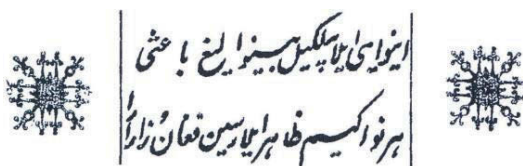 اینوایی ایلا بیلکیل بینوا لیغ باعثی
هر نوا کیم ظاهر ایلارسین فغانُ زار ارا